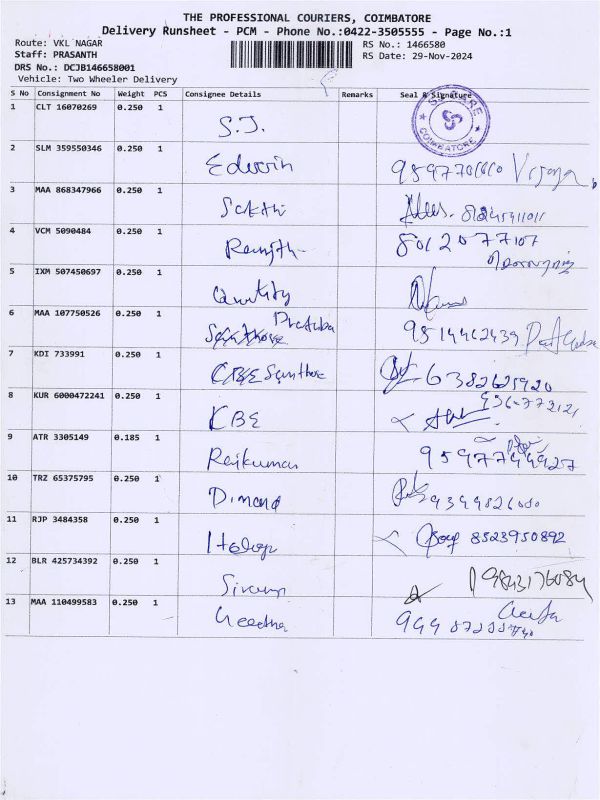 THE PROFESSIONAL COURIERS, COIMBATORE
Delivery Runsheet - PCM - Phone No.:0422-3505555 - Page No.:1
Route: VKL NAGAR
RS No.: 1466580
Staff: PRASANTH
RS Date: 29-Nov-2024
DRS No.: DCJB146658001
Vehicle: Two Wheeler Delivery
S No Consignment No Weight PCS Consignee Details Remarks Seal & Signature
1 CLT 16070269 0.250 1 S.J.
COIMBATORE
2 SLM 359550346 0.250 1 Edwin
3 MAA 868347966 0.250 1 Sakthi
4 VCM 5090484 0.250 1 Ranjith 8012077107
5 IXM 507450697 0.250 1 Quantity
6 MAA 107750526 0.250 1 Prathiba 9514462439
7 KDI 733991 0.250 1 CBE Santhose 6382625920
8 KUR 6000472241 0.250 1 CBE
9 ATR 3305149 0.185 1 Rajkumar 9597744927
10 TRZ 65375795 0.250 1 Dimand
11 RJP 3484358 0.250 1 8523950892
12 BLR 425734392 0.250 1
13 MAA 110499583 0.250 1 Geetha